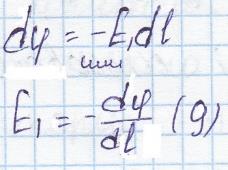 dφ = -E₁dl
или
E₁ = -dφ/dl (9)